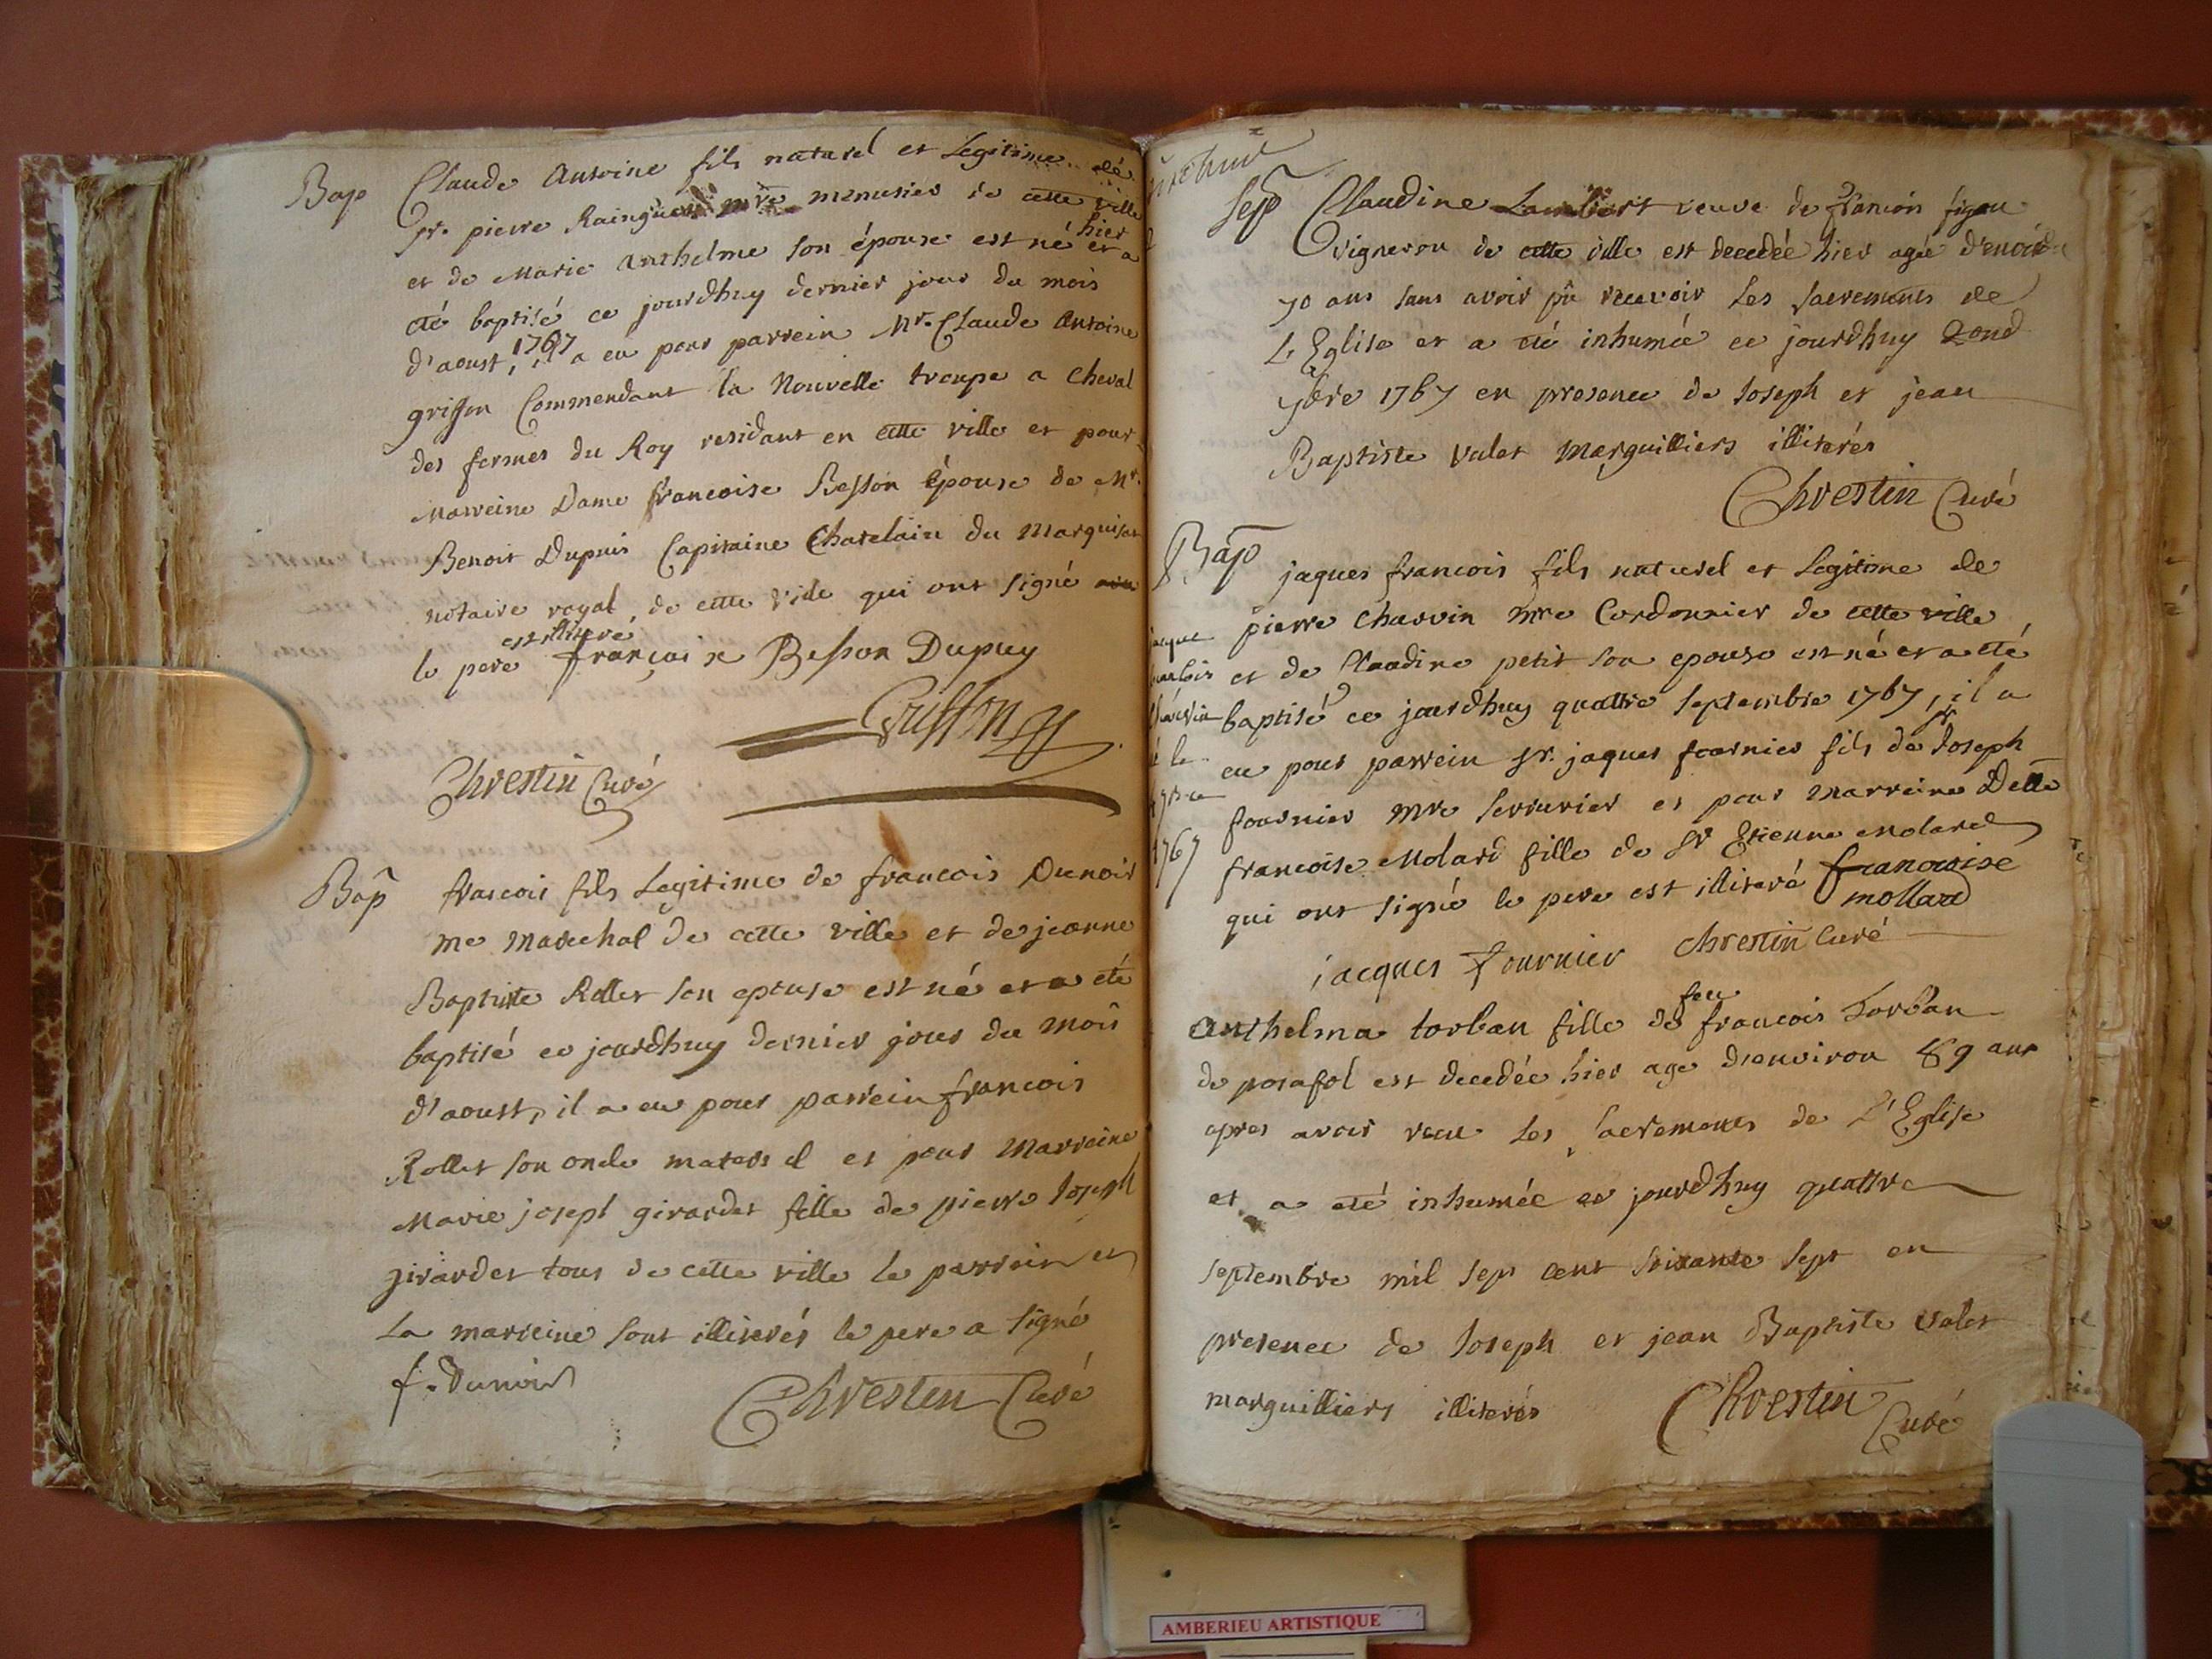 Bap Claude Antoine fils naturel et Legitime dé
Sr. pierre mre menusier de cette ville
et de Marie Anthelme son épouse est né hier et a
eté baptisé ce jourdhuy dernier jour du mois
d'aoust, 1767 il a eu pour parrein Mr. Claude Antoine
griffon Commendant la Nouvelle troupe a cheval
des fermes du Roy residant en cette ville et pour
Marreine Dame francoise Besson épouse de Mr.
Benoit Dupuis Capitaine Chatelain du Marquisat
notaire royal, de cette ville qui ont signé
le pere est illiteré françoise Besson Dupuy
Griffon
Chrestin Curé
Bap francois fils Legitime de francois Dunoir
me Marechal de cette ville et de jeanne
Baptiste Rollet son epouse est né et a eté
baptisé ce jourdhuy dernier jour du mois
d'aoust, il a eu pour parrein francois
Rollet son oncle maternel et pour Marreine
Marie joseph girardet fille de pierre Joseph
girardet tous de cette ville le parrein et
La marreine sont illiterés le pere a signé
f. Dunoir
Chrestin Curé
Sep Claudine Lambert veuve de francois
vigneron de cette ville est decedée hier agée d'environ
70 ans sans avoir pu recevoir Les sacrements de
L'Eglise et a eté inhumée ce jourdhuy 2ond
7bre 1767 en presence de Joseph et jean
Baptiste Valet Marguilliers illiterés
Chrestin Curé
Bap
jaques francois fils naturel et Legitime de
pierre Charvin mre Cordonnier de cette ville
et de Claudine petit son epouse est né et a eté
baptisé ce jourdhuy quattre septembre 1767, il a
eu pour parrein Sr. jaques fournier fils de Sr Joseph
fournier mre serrurier et pour Marreine Delle
francoise Molard fille de Sr Etienne Molard
qui ont signé le pere est illiteré francoise
mollard
1767
jacques fournier Chrestin Curé
Anthelma torban fille de feu francois torban
de posafol est decedée hier age d'environ 89 ans
apres avoir recu Les sacrements de L'Eglise
et a eté inhumée ce jourdhuy quattre
septembre mil sept cent soixante sept en
presence de Joseph et jean Baptiste Valet
marguilliers illiterés
Chrestin
Curé
AMBERIEU ARTISTIQUE